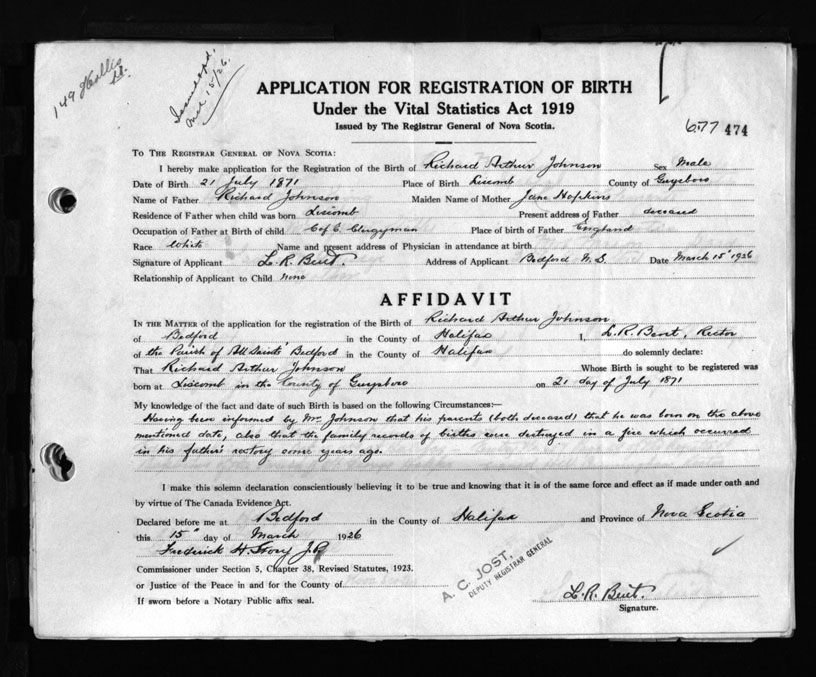 149 Hollis St.
Issued
Mar 15/26.
APPLICATION FOR REGISTRATION OF BIRTH
Under the Vital Statistics Act 1919
Issued by The Registrar General of Nova Scotia.
677 474
TO THE REGISTRAR GENERAL OF NOVA SCOTIA:
I hereby make application for the Registration of the Birth of Richard Arthur Johnson Sex Male
Date of Birth 21 July 1871 Place of Birth Liscomb County of Guysboro
Name of Father Richard Johnson Maiden Name of Mother Jane Hopkins
Residence of Father when child was born Liscomb Present address of Father deceased
Occupation of Father at Birth of child C of E. Clergyman Place of birth of Father England
Race White Name and present address of Physician in attendance at birth
Signature of Applicant L. R. Bent. Address of Applicant Bedford N. S Date March 15" 1926
Relationship of Applicant to Child none
AFFIDAVIT
IN THE MATTER of the application for the registration of the Birth of Richard Arthur Johnson
of Bedford in the County of Halifax I, L. R. Bent, Rector
of the Parish of All Saints' Bedford in the County of Halifax do solemnly declare:
That Richard Arthur Johnson Whose Birth is sought to be registered was
born at Liscomb in the County of Guysboro on 21 day of July 1871
My knowledge of the fact and date of such Birth is based on the following Circumstances:—
Having been informed by Mr Johnson that his parents (both deceased) that he was born on the above
mentioned date, also that the family records of births were destroyed in a fire which occurred
in his father's rectory some years ago.
I make this solemn declaration conscientiously believing it to be true and knowing that it is of the same force and effect as if made under oath and
by virtue of The Canada Evidence Act.
Declared before me at Bedford in the County of Halifax and Province of Nova Scotia
this 15" day of March 1926
Frederick H. Story J.P.
Commissioner under Section 5, Chapter 38, Revised Statutes, 1923.
or Justice of the Peace in and for the County of
If sworn before a Notary Public affix seal.
A. C. JOST,
DEPUTY REGISTRAR GENERAL
L. R. Bent.
Signature.